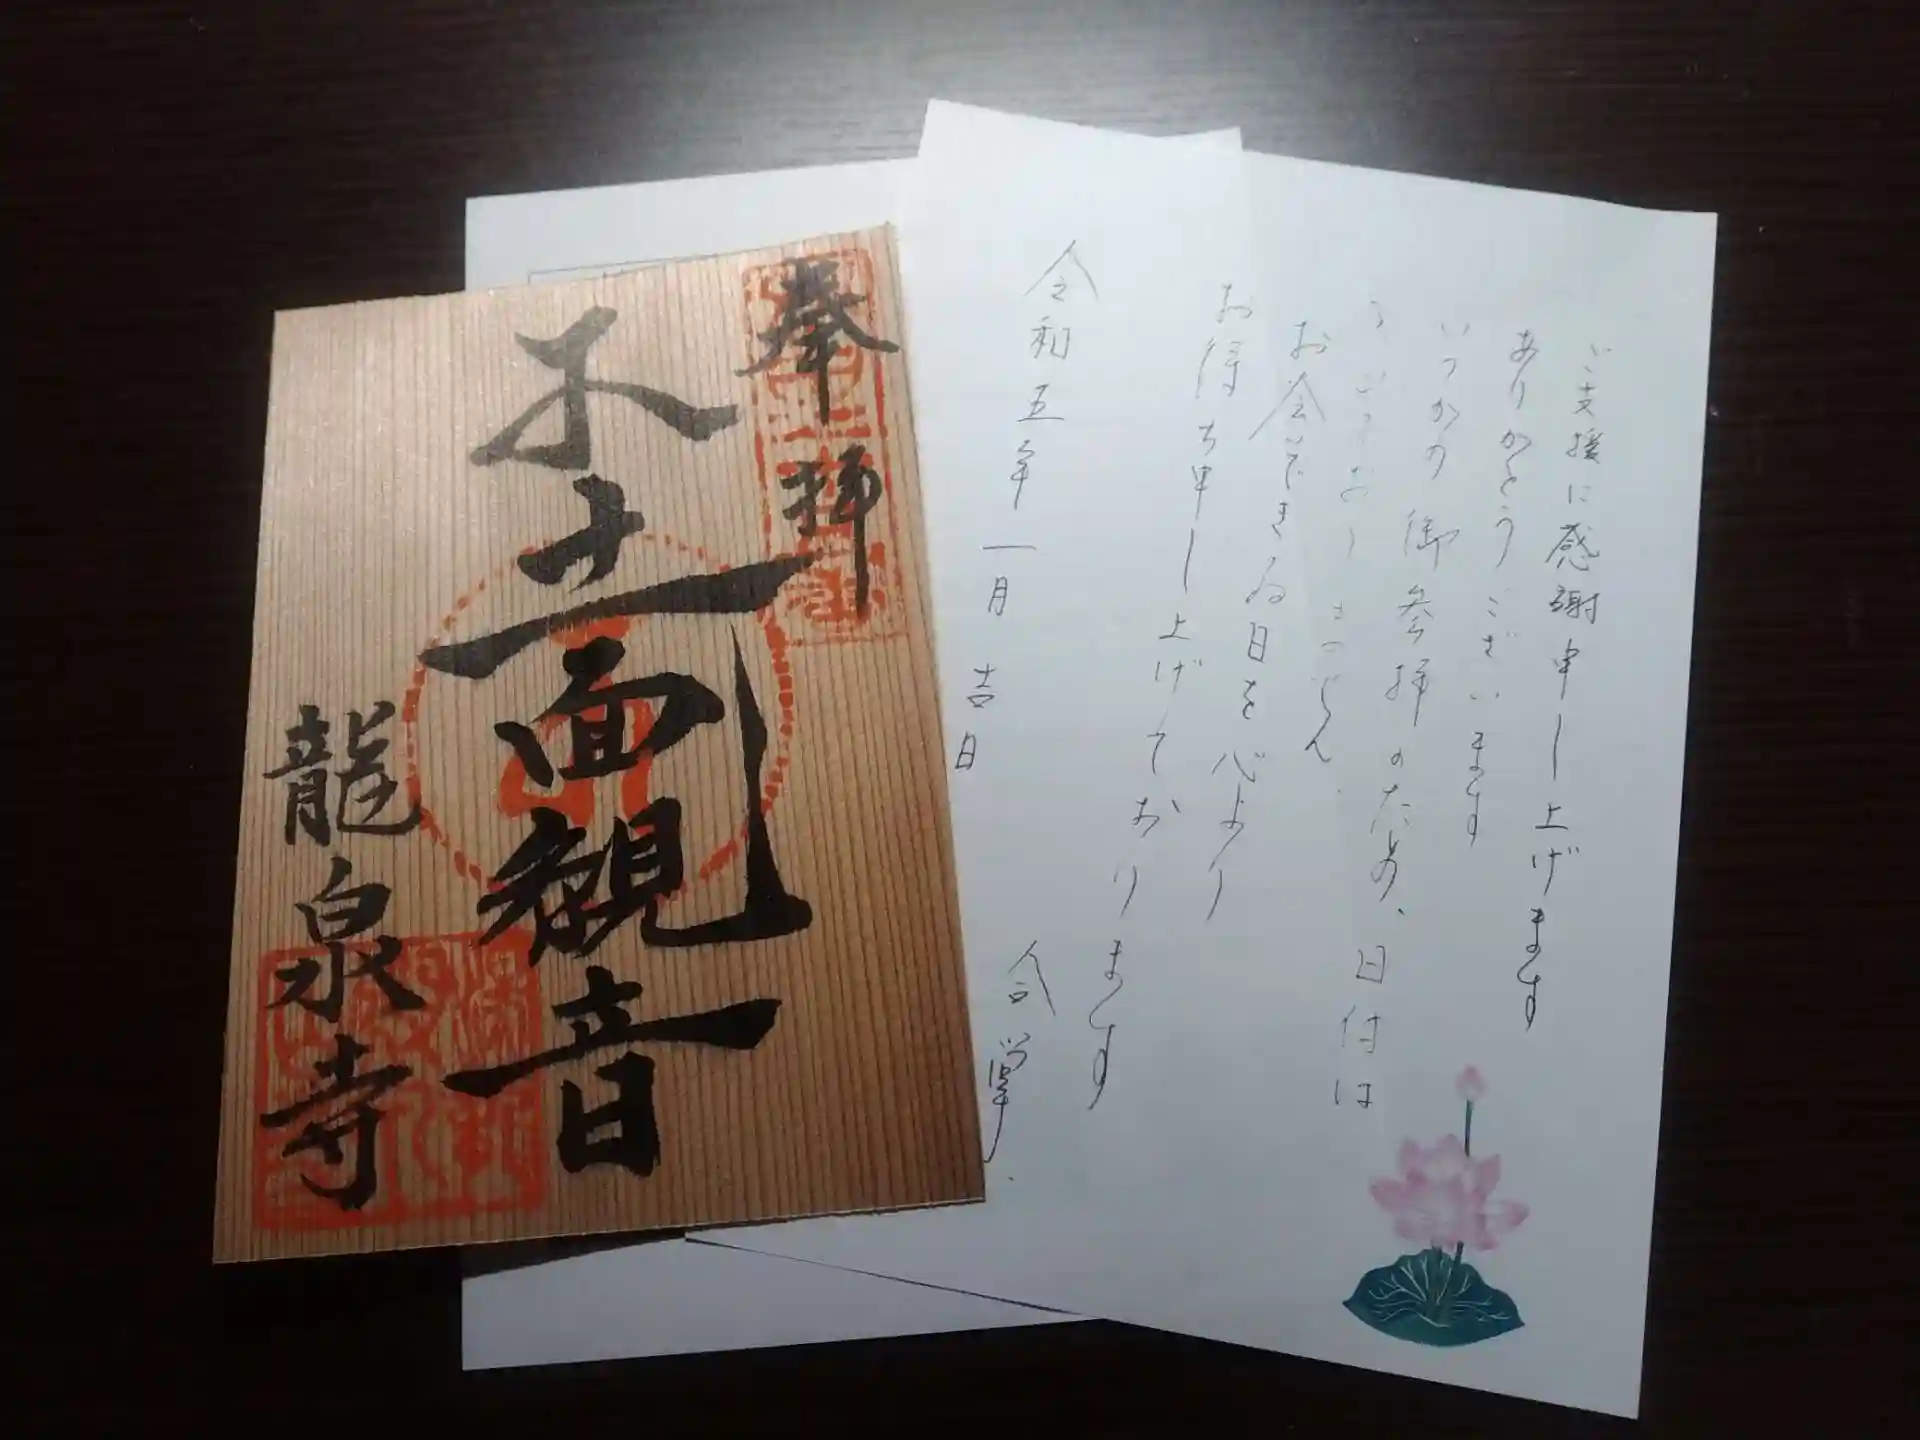 奉拝
十一面観音
龍泉寺
ご支援に感謝申し上げます
ありがとうございます
いつかの御参拝のため、日付は
お会いできる日を心より
お待ち申し上げております
令和五年一月吉日
合掌